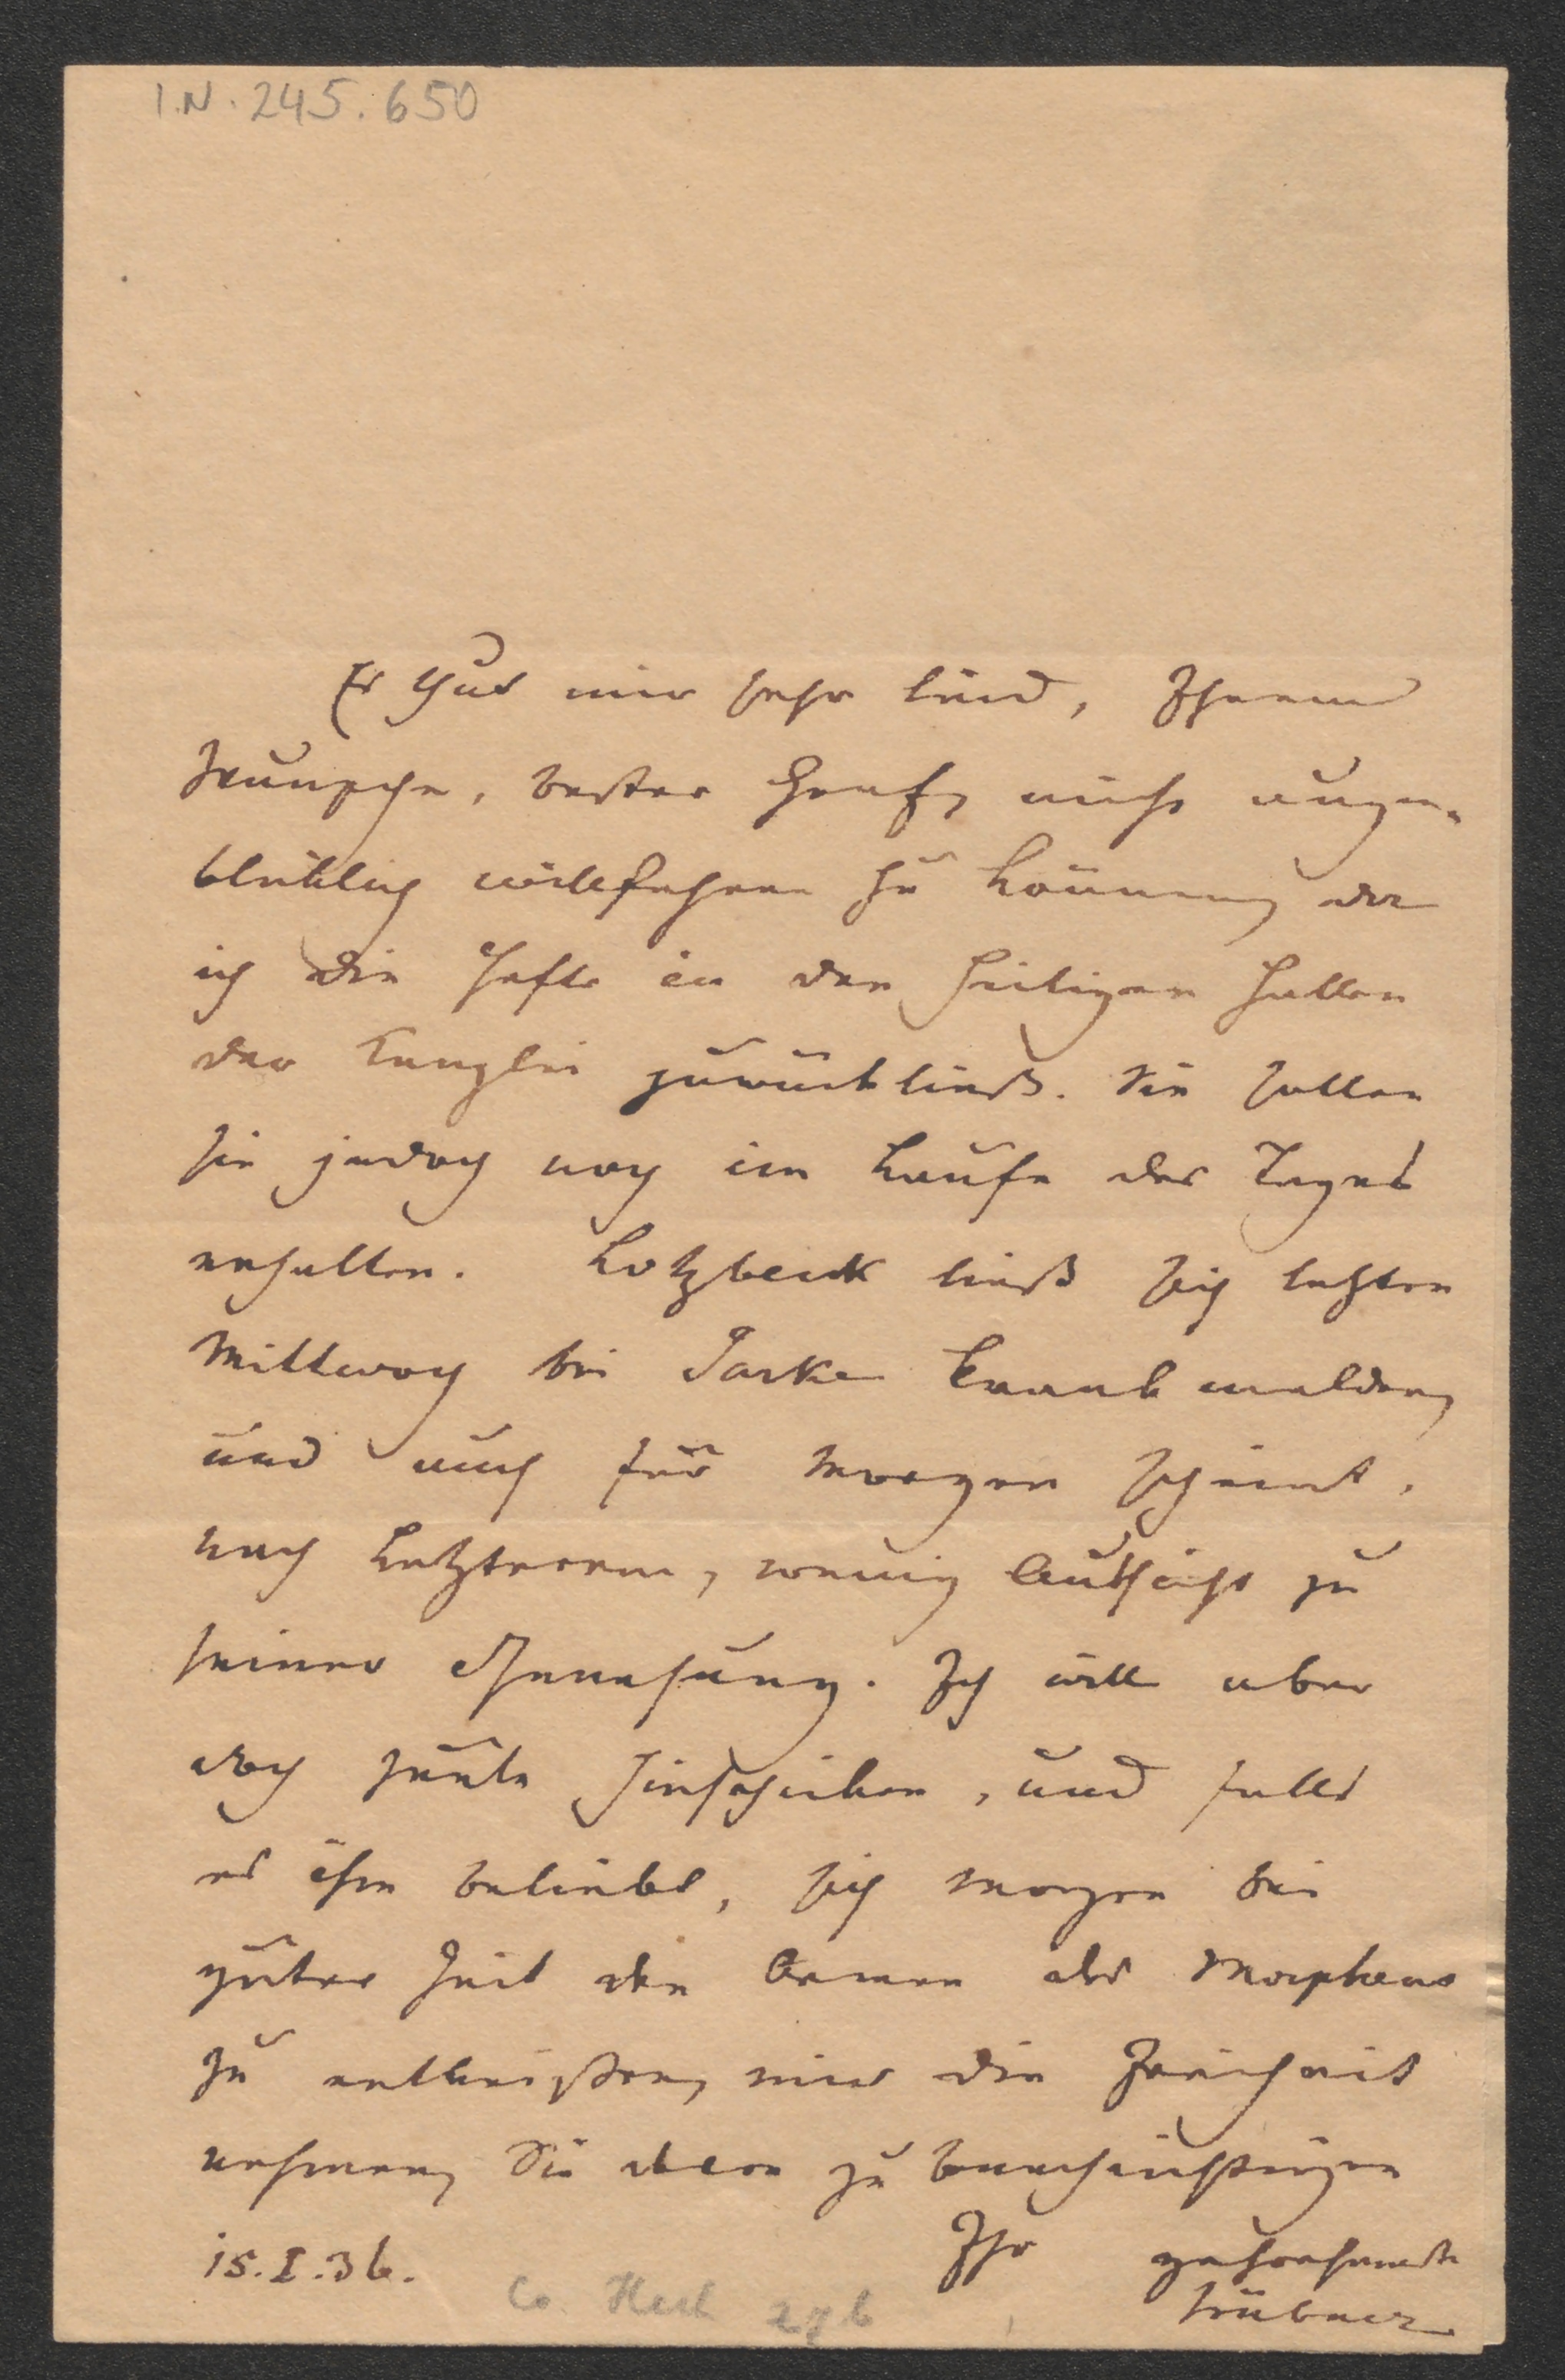 I.N. 245.650
Es thut mir sehr leid, Ihrem
Wunsche, bester Graf, nicht augen-
blicklich willfahren zu können, da
ich die Hefte in den heiligen Hallen
der Kanzlei zurückließ. Sie sollen
sie jedoch noch im Laufe des Tages
erhalten. Lotzbeck ließ sich letzten
Mittwoch bei Jarke krank melden,
und auch für morgen scheint,
nach Letzterem, wenig Aussicht zu
seiner Genesung. Ich will aber
doch heute hinschicken, und falls
es ihm beliebt, sich morgen bei
guter Zeit den Armen des Morpheus
zu entreißen, mir die Freiheit
nehmen, Sie davon zu benachrichtigen
15.I.36. Ihr gehorsamste
Hübner